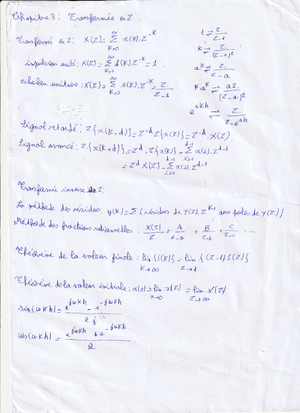 Chapitre 3 : Transformée en Z.
Transformée en Z : X(Z) = ∑ x(k).Z^-K
K=0
K ⇌ Z/(Z-1)²
impulsion unité : X(Z) = ∑ δ(k).Z^-K = 1
a^K ⇌ Z/(Z-a)
echelon unitaire : X(Z) = ∑ Z^-K = Z/(Z-1)
K a^K ⇌ aZ/(Z-a)²
e^akh ⇌ Z/(Z-e^ah)
Signal retardé : Z{x(k-d)} = Z^-d Z{x(k)} = Z^-d . X(Z)
Signal avancé : Z{x(k+d)} = Z^d . Z{x(k)} - ∑ x(i).Z^d-i
= Z^d X(Z) - ∑ x(i).Z^d-i
Transformée inverse de Z :
La méthode des résidus : y(k) = ∑ {résidus de Y(Z).Z^K-1 aux pôles de Y(Z)}
Méthode des fractions rationnelles : X(Z)/Z = A/Z-a + B/Z- + C/Z- ...
Théorème de la valeur finale : lim f(K) = lim {(Z-1)F(Z)}
K→∞ Z→1
Théorème de la valeur initiale : x(0) = lim x(K) = lim X(Z)
K→0 Z→∞
sin(ωkh) = e^jωkh - e^-jωkh / 2j
cos(ωkh) = e^jωkh + e^-jωkh / 2